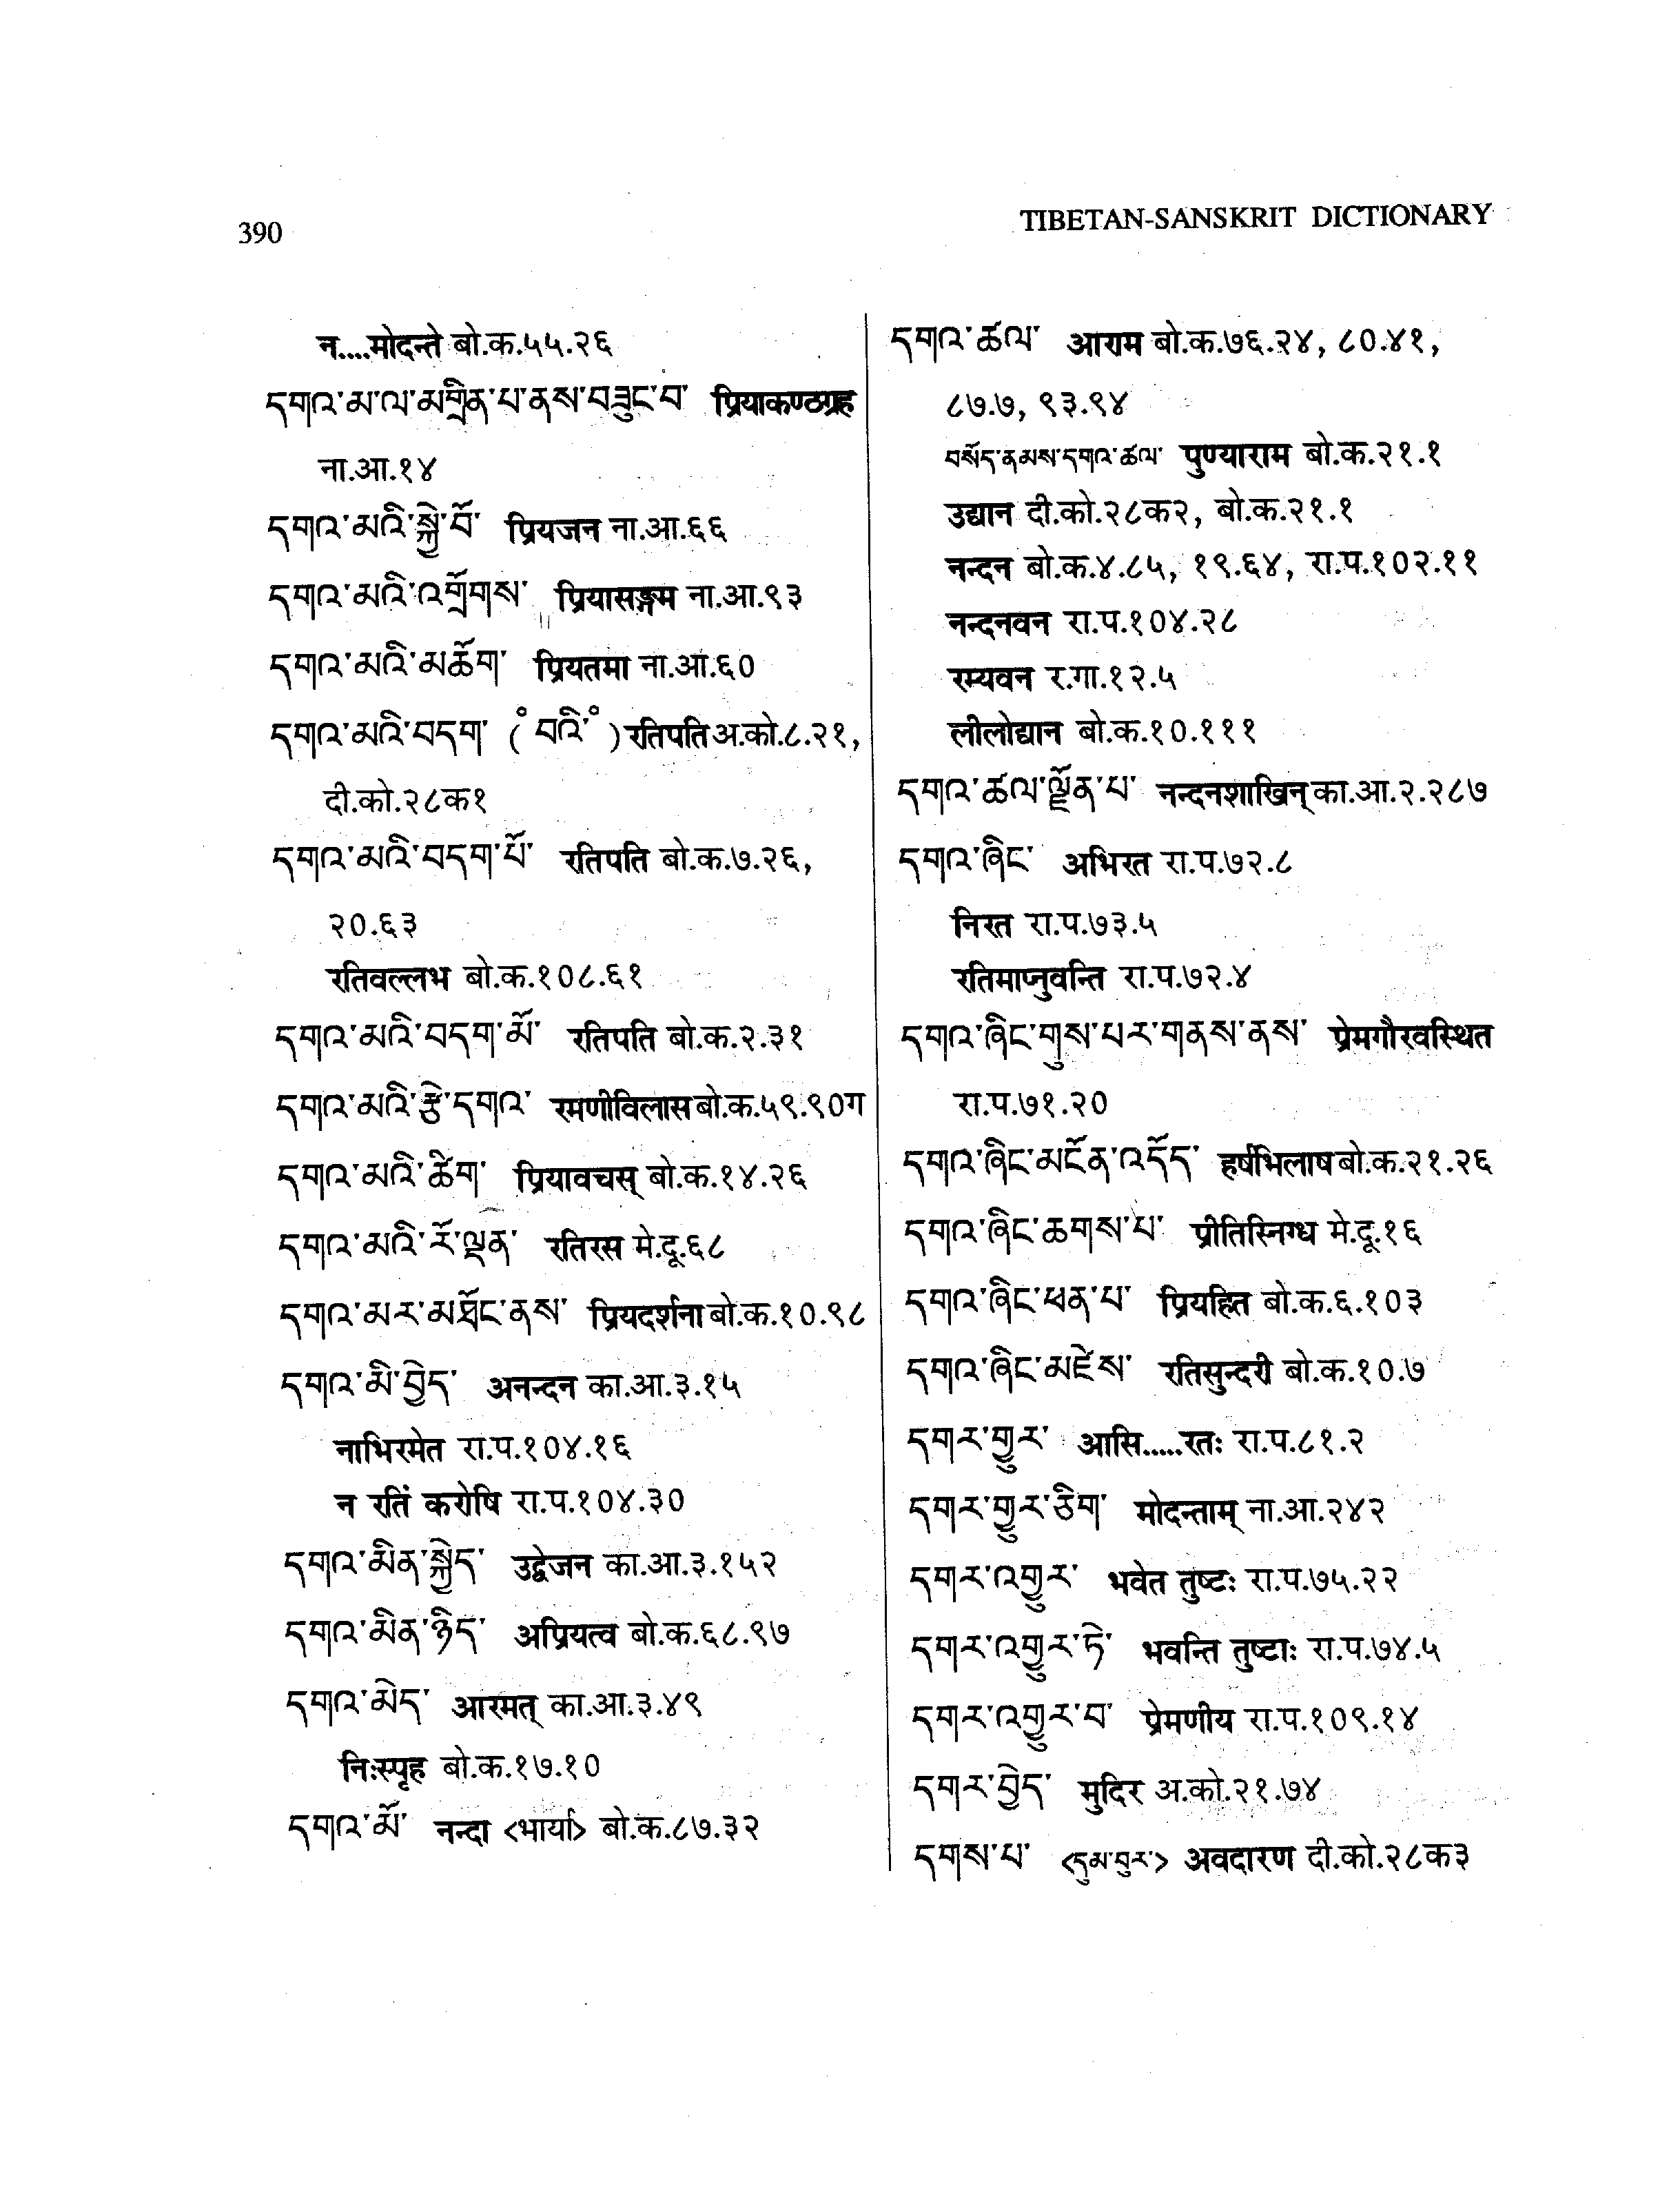 390
TIBETAN-SANSKRIT DICTIONARY
न....मोदन्ते बो.क.५५.२६
དགའ་མ་ལ་མགྲིན་པ་ནས་བཟུང་བ་ प्रियाकण्ठग्रह
ना.आ.१४
དགའ་མའི་སྐྱེ་བོ་ प्रियजन ना.आ.६६
དགའ་མའི་འགྲོགས་ प्रियासङ्गम ना.आ.९३
དགའ་མའི་མཆོག་ प्रियतमा ना.आ.६०
དགའ་མའི་བདག་ (༠ བའི་༠) रतिपति अ.को.८.२१,
दी.को.२८क१
དགའ་མའི་བདག་པོ་ रतिपति बो.क.७.२६,
२०.६३
रतिवल्लभ बो.क.१०८.६१
དགའ་མའི་བདག་མོ་ रतिपति बो.क.२.३१
དགའ་མའི་རྩེ་དགའ་ रमणीविलास बो.क.५९.९०ग
དགའ་མའི་ཚིག་ प्रियावचस् बो.क.१४.२६
དགའ་མའི་རོ་ལྡན་ रतिरस मे.दू.६८
དགའ་མར་མཐོང་ནས་ प्रियदर्शना बो.क.१०.९८
དགའ་མི་བྱེད་ अनन्दन का.आ.३.१५
नाभिरमेत रा.प.१०४.१६
न रतिं करोषि रा.प.१०४.३०
དགའ་མིན་སྐྱེད་ उद्वेजन का.आ.३.१५२
དགའ་མིན་ཉིད་ अप्रियत्व बो.क.६८.९७
དགའ་མེད་ आरमत् का.आ.३.४९
निःस्पृह बो.क.१७.१०
དགའ་མོ་ नन्दा <भार्या> बो.क.८७.३२
དགའ་ཚལ་ आराम बो.क.७६.२४, ८०.४१,
८७.७, ९३.९४
བསོད་ནམས་དགའ་ཚལ་ पुण्याराम बो.क.२१.१
उद्यान दी.को.२८क२, बो.क.२१.१
नन्दन बो.क.४.८५, १९.६४, रा.प.१०२.११
नन्दनवन रा.प.१०४.२८
रम्यवन र.गा.१२.५
लीलोद्यान बो.क.१०.१११
དགའ་ཚལ་ལྗོན་པ་ नन्दनशाखिन् का.आ.२.२८७
དགའ་ཞིང་ अभिरत रा.प.७२.८
निरत रा.प.७३.५
रतिमाप्नुवन्ति रा.प.७२.४
དགའ་ཞིང་གུས་པར་གནས་ནས་ प्रेमगौरवस्थित
रा.प.७१.२०
དགའ་ཞིང་མངོན་འདོད་ हर्षभिलाष बो.क.२१.२६
དགའ་ཞིང་ཆགས་པ་ प्रीतिस्निग्ध मे.दू.१६
དགའ་ཞིང་ཕན་པ་ प्रियहित बो.क.६.१०३
དགའ་ཞིང་མཛེས་ रतिसुन्दरी बो.क.१०.७
དགར་གྱུར་ आसि.....रतः रा.प.८१.२
དགར་གྱུར་ཅིག་ मोदन्ताम् ना.आ.२४२
དགར་འགྱུར་ भवेत तुष्टः रा.प.७५.२२
དགར་འགྱུར་ཏེ་ भवन्ति तुष्टाः रा.प.७४.५
དགར་འགྱུར་བ་ प्रेमणीय रा.प.१०९.१४
དགར་བྱེད་ मुदिर अ.को.२१.७४
དགས་པ་ <དུམ་བུར་> अवदारण दी.को.२८क३